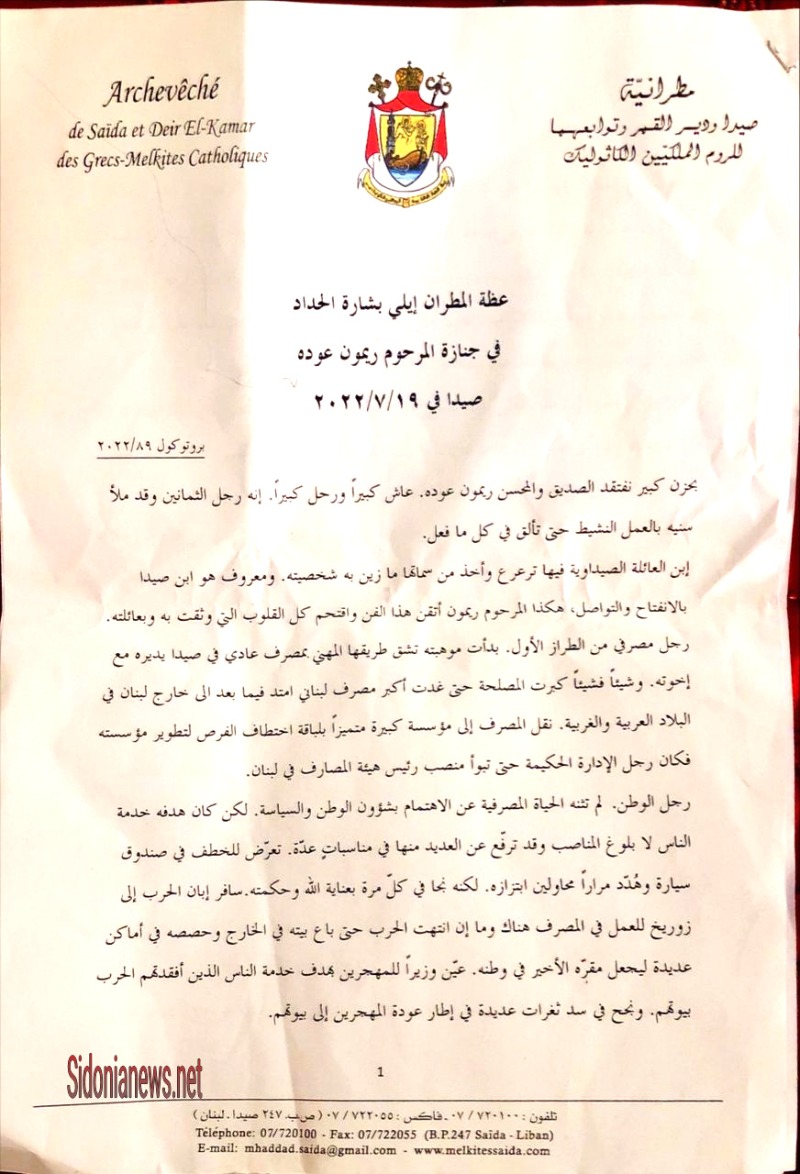 Archevêché
de Saïda et Deir El-Kamar
des Grecs-Melkites Catholiques
مطرانيّة
صيدا ودير القمر وتوابعهما
للروم الملكيّين الكاثوليك
عظة المطران إيلي بشارة الحداد
في جنازة المرحوم ريمون عوده
صيدا في ٢٠٢٢/٧/١٩
بروتوكول ٢٠٢٢/٨٩
بحزن كبير نفتقد الصديق والمحسن ريمون عوده. عاش كبيراً ورحل كبيراً. إنه رجل الثمانين وقد ملأ
سنيه بالعمل النشيط حتى تألق في كل ما فعل.
إبن العائلة الصيداوية فيها ترعرع وأخذ من سماتها ما زين به شخصيته. ومعروف هو ابن صيدا
بالانفتاح والتواصل، هكذا المرحوم ريمون أتقن هذا الفن واقتحم كل القلوب التي وثقت به وبعائلته.
رجل مصرفي من الطراز الأول. بدأت موهبته تشق طريقها المهني بمصرف عادي في صيدا يديره مع
إخوته. وشيئاً فشيئاً كبرت المصلحة حتى غدت أكبر مصرف لبناني امتد فيما بعد الى خارج لبنان في
البلاد العربية والغربية. نقل المصرف إلى مؤسسة كبيرة متميزاً بلباقة اختطاف الفرص لتطوير مؤسسته
فكان رجل الإدارة الحكيمة حتى تبوأ منصب رئيس هيئة المصارف في لبنان.
رجل الوطن. لم تثنه الحياة المصرفية عن الاهتمام بشؤون الوطن والسياسة. لكن كان هدفه خدمة
الناس لا بلوغ المناصب وقد ترفّع عن العديد منها في مناسباتٍ عدّة. تعرّض للخطف في صندوق
سيارة وهُدّد مراراً محاولين ابتزازه. لكنه نجا في كلّ مرة بعناية الله وحكمته.سافر إبان الحرب إلى
زوريخ للعمل في المصرف هناك وما إن انتهت الحرب حتى باع بيته في الخارج وحصصه في أماكن
عديدة ليجعل مقرّه الأخير في وطنه. عيّن وزيراً للمهجرين بهدف خدمة الناس الذين أفقدتهم الحرب
بيوتهم. ونجح في سد ثغرات عديدة في إطار عودة المهجرين إلى بيوتهم.
1
Sidonianews.net
تلفون : ٠٧/٧٢٠١٠٠ - فاكس : ٠٧/٧٢٢٠٥٥ (ص.ب. ٢٤٧ صيدا - لبنان)
Téléphone: 07/720100 - Fax: 07/722055 (B.P.247 Saïda - Liban)
E-mail: mhaddad.saida@gmail.com - www.melkitessaida.com